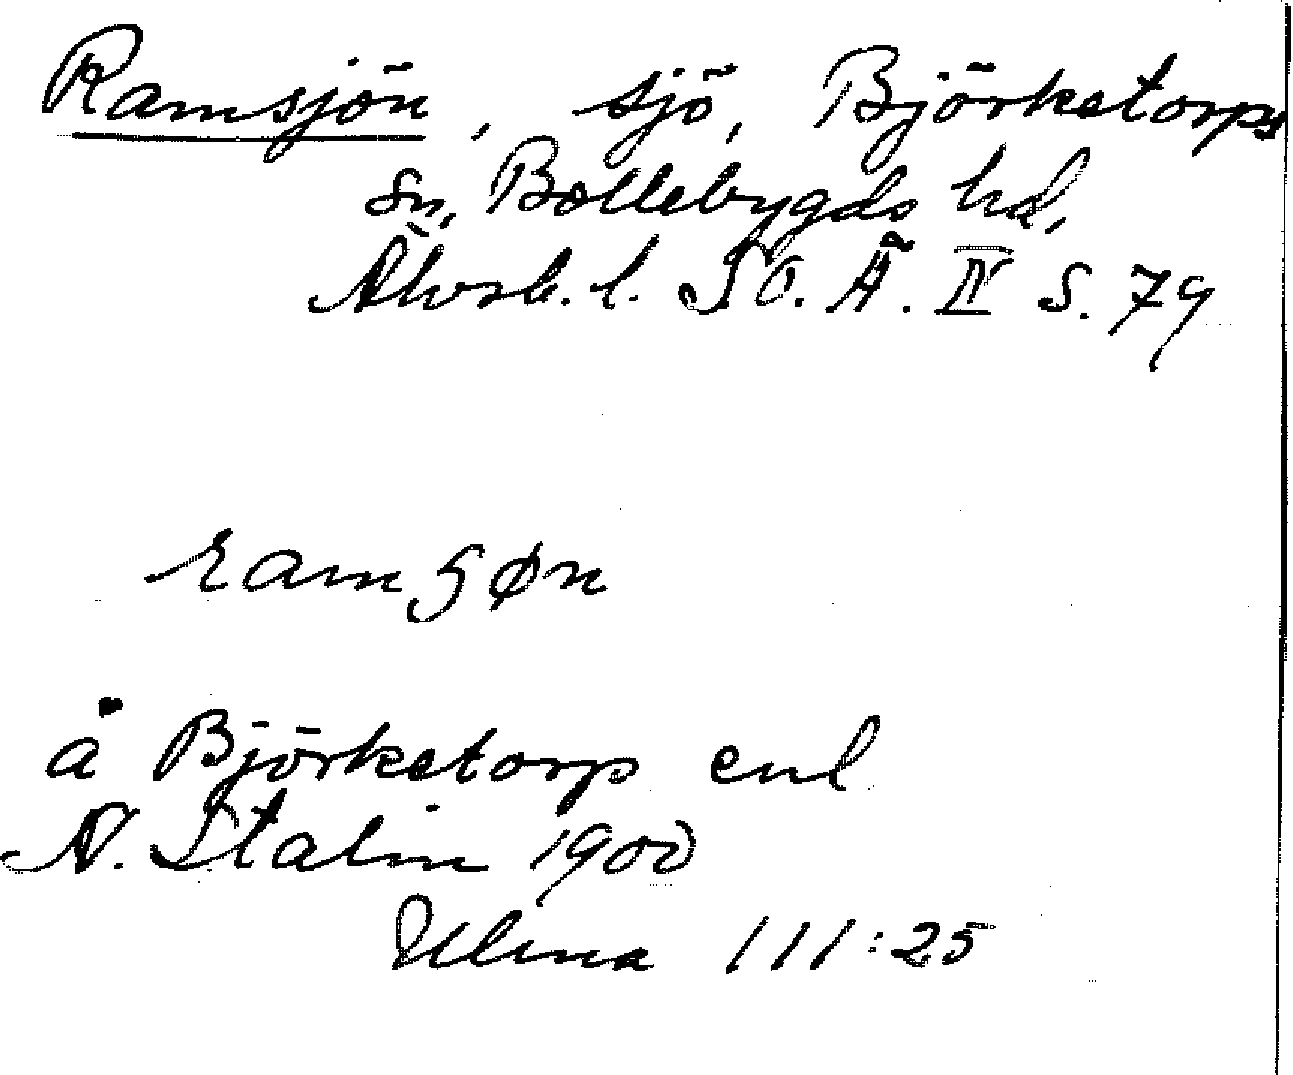 Ramsjön, sjö, Björketorps
sn, Bollebygds hd,
Älvsb. l. SO. Ä. IV S. 79
ramsøn
å Björketorp enl
N. Stalin 1900
Ulma 111:25